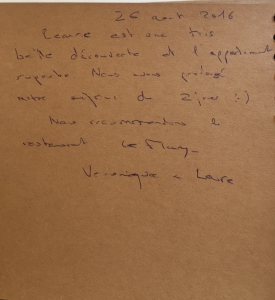 26 août 2016
est une très
belle découverte et l'appartement
superbe. Nous avons prolongé
notre séjour de 2 jours :)
Nous recommandons le
restaurant Le
Véronique & Laure